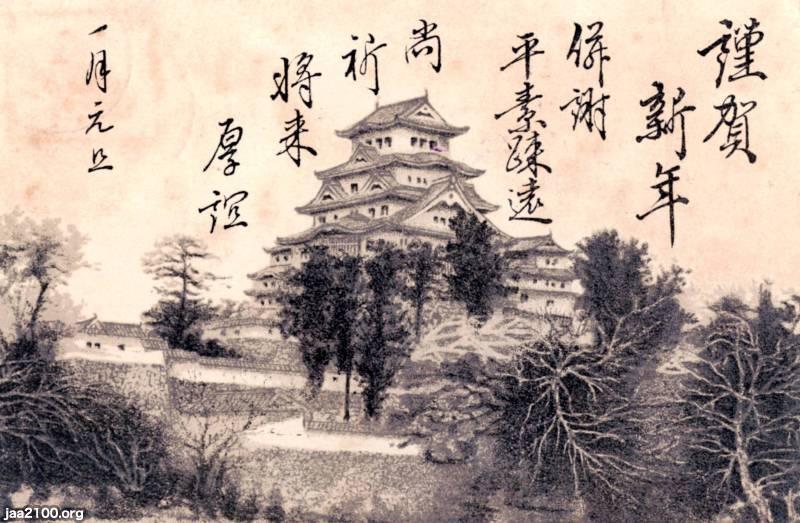 謹賀
新年
併謝
平素疎遠
尚
祈
将来
厚誼
一月元旦
jaa2100.org